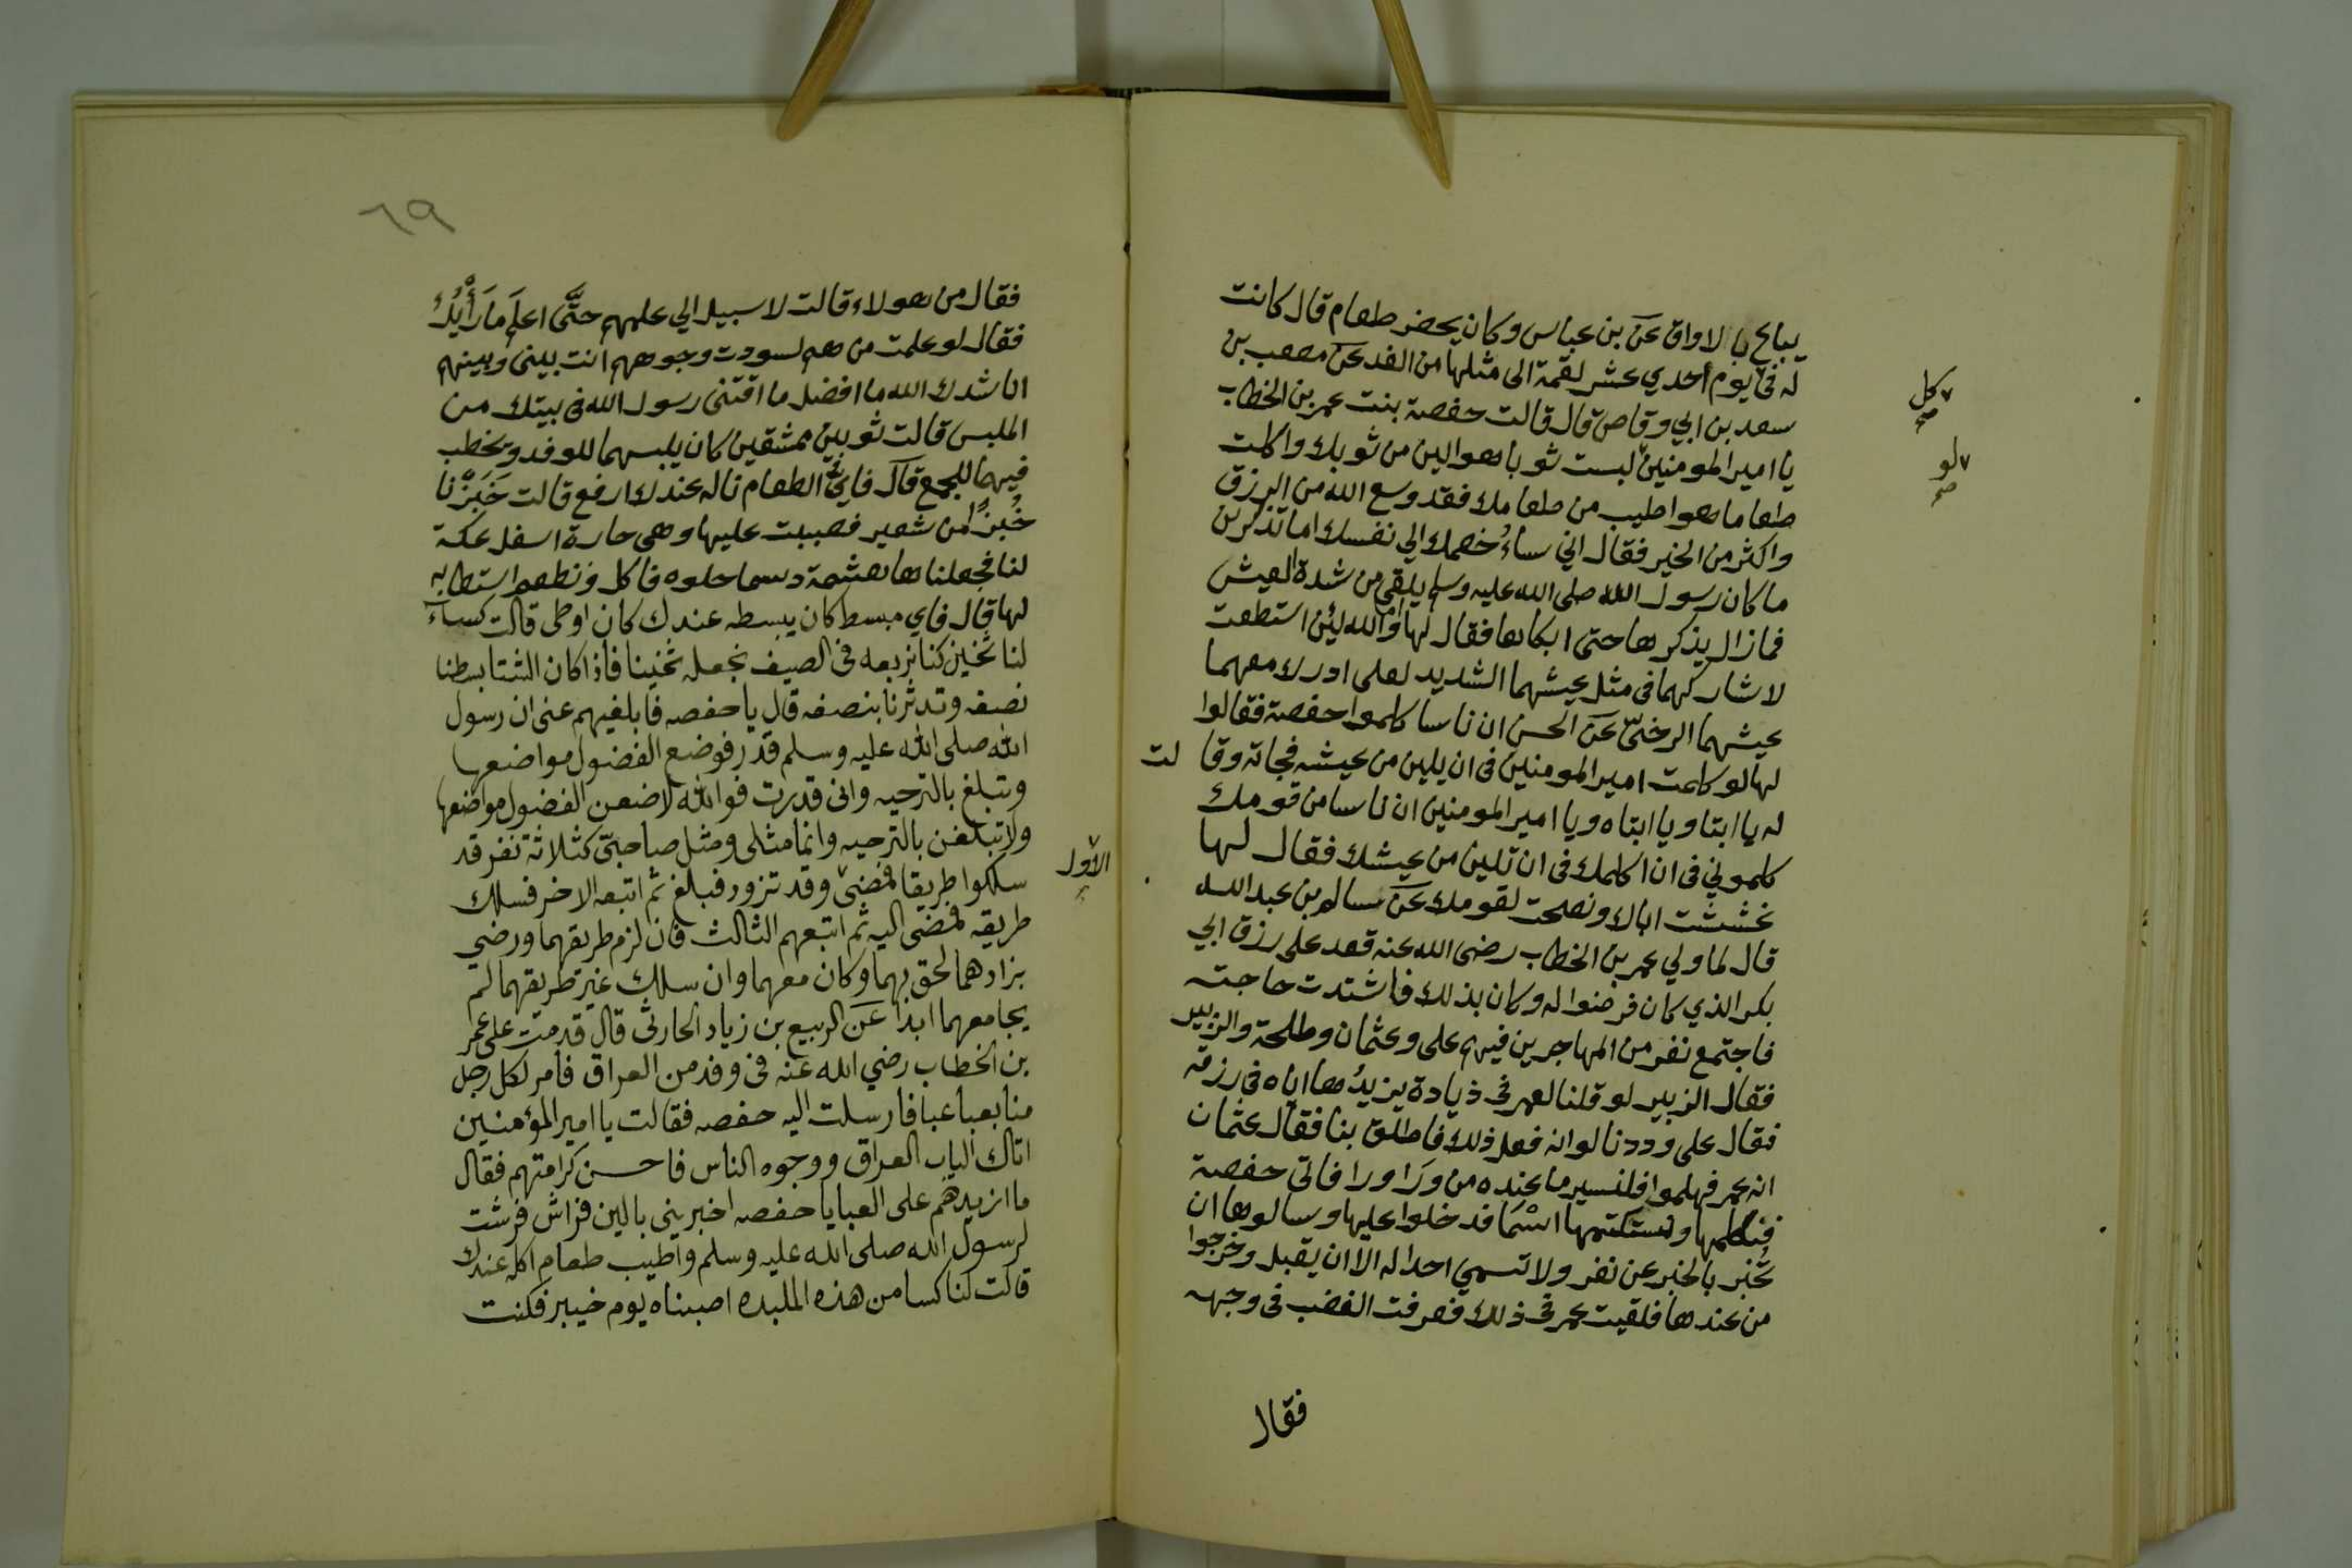 يباع بالاواق عن بن عباس وكان يحضر طعام قال كانت
له في يوم احدي عشر لقمة الى مثلها من الغد عن مصعب بن
سعد بن ابي وقاص قال قالت حفصة بنت عمر بن الخطاب
يا امير المومنين لبست ثوبا هو الين من ثوبك واكلت
طعاما هو اطيب من طعامك فقد وسع الله من الرزق
واكثر من الخير فقال اني ساء خصمك الي نفسك اما تذكرين
ما كان رسول الله صلى الله عليه وسلم يلقى من شدة العيش
فما زال يذكرها حتى ابكاها فقال لها اما والله لئن استطعت
لاشاركهما في مثل عيشهما الشديد لعلى ادرك معهما
عيشهما الرخى عن الحسن ان ناسا كلموا حفصة فقالوا
لها لو كلمت امير المومنين في ان يلين من عيشه فجاته وقالت
له يا ابتا ويا ابتاه ويا امير المومنين ان ناسا من قومك
كلموني في ان اكلمك في ان تلين من عيشك فقال لها
غششت اباك ونصحت لقومك عن سالم بن عبد الله
قال لما ولي عمر بن الخطاب رضى الله عنه قعد على رزق ابي
بكر الذي كان فرضوا له وكان بذلك فاشتدت حاجته
فاجتمع نفر من المهاجرين فيهم على وعثمان وطلحة والزبير
فقال الزبير لو قلنا لعمر في ذيادة يزيدها اياه في رزقه
فقال على وددنا لو انه فعل ذلك فاطلق بنا فقال عثمان
انه عمر فهلموا فلنسير ما عنده من ورا ورا فاتي حفصة
فنكلمها ونستكتمها اسما فدخلوا عليها وسالوها ان
تخبر بالخبر عن نفر ولا تسمي احدا له الا ان يقبل وخرجوا
من عندها فلقيت عمر في ذلك فعرفت الغضب في وجهه
فقال
كل
صح
لو
صح
٦٩
فقال من هولاء قالت لا سبيل الي علمهم حتَّى اعلَم ما رَأْيُكُ
فقال لو علمت من هم لسودت وجوههم انت بينى وبينهم
اناشدك الله ما افضل ما اقتنى رسول الله في بيتك من
الملبس قالت ثوبين ممشقين كان يلبسهما للوفد ويخطب
فيهما للجمع قال فاي الطعام ناله عندك ارفع قالت خَبَزْنا
خُبزًا من شعير فصببت عليها وهي حارة اسفل عكة
لنا فجعلناها هشمة دسما حلوه فاكل وتطعم استطابه
لها قال فاي مبسط كان يبسطه عندك كان اوطى قالت كساء
لنا ثخين كنا نربعه في الصيف نجعله ثخينا فاذا كان الشتا بسطنا
نصفه وتدثرنا بنصفه قال يا حفصه فابلغيهم عنى ان رسول
الله صلى الله عليه وسلم قدر فوضع الفضول مواضعها
وتبلغ بالترجيه وانى قدرت فوالله لاضعن الفضول مواضعها
ولاتبلغن بالترجيه وانما مثلى ومثل صاحبى كثلاثة نفر قد
سلكوا طريقا فمضى وقد تزود فبلغ ثم اتبعه الاخر فسلك
الأول
طريقه فمضى اليه ثم اتبعهم الثالث فان لزم طريقهما ورضي
بزادهما لحق بهما وكان معهما وان سلك غير طريقهما لم
يجامعهما ابدا عن الربيع بن زياد الحارثى قال قدمت على عمر
بن الخطاب رضي الله عنه في وفد من العراق فامر لكل رجل
منا بعبا عبا فارسلت اليه حفصه فقالت يا امير المؤمنين
اتاك الباب العراق ووجوه الناس فاحسن كرامتهم فقال
ما ازيدهم على العبا يا حفصه اخبريني بالين فراش فرشت
لرسول الله صلى الله عليه وسلم واطيب طعام اكله عندك
قالت لنا كسا من هذه الملبده اصبناه يوم خيبر فكنت